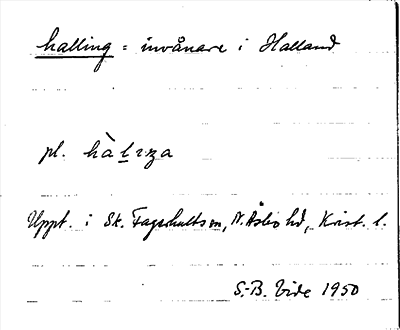 halling = invånare i Halland
pl. hàlıza
Uppt. i Sk. Fagerhults sn, N. Åsbo hd, Krist. l.
S.-B. Vide 1950